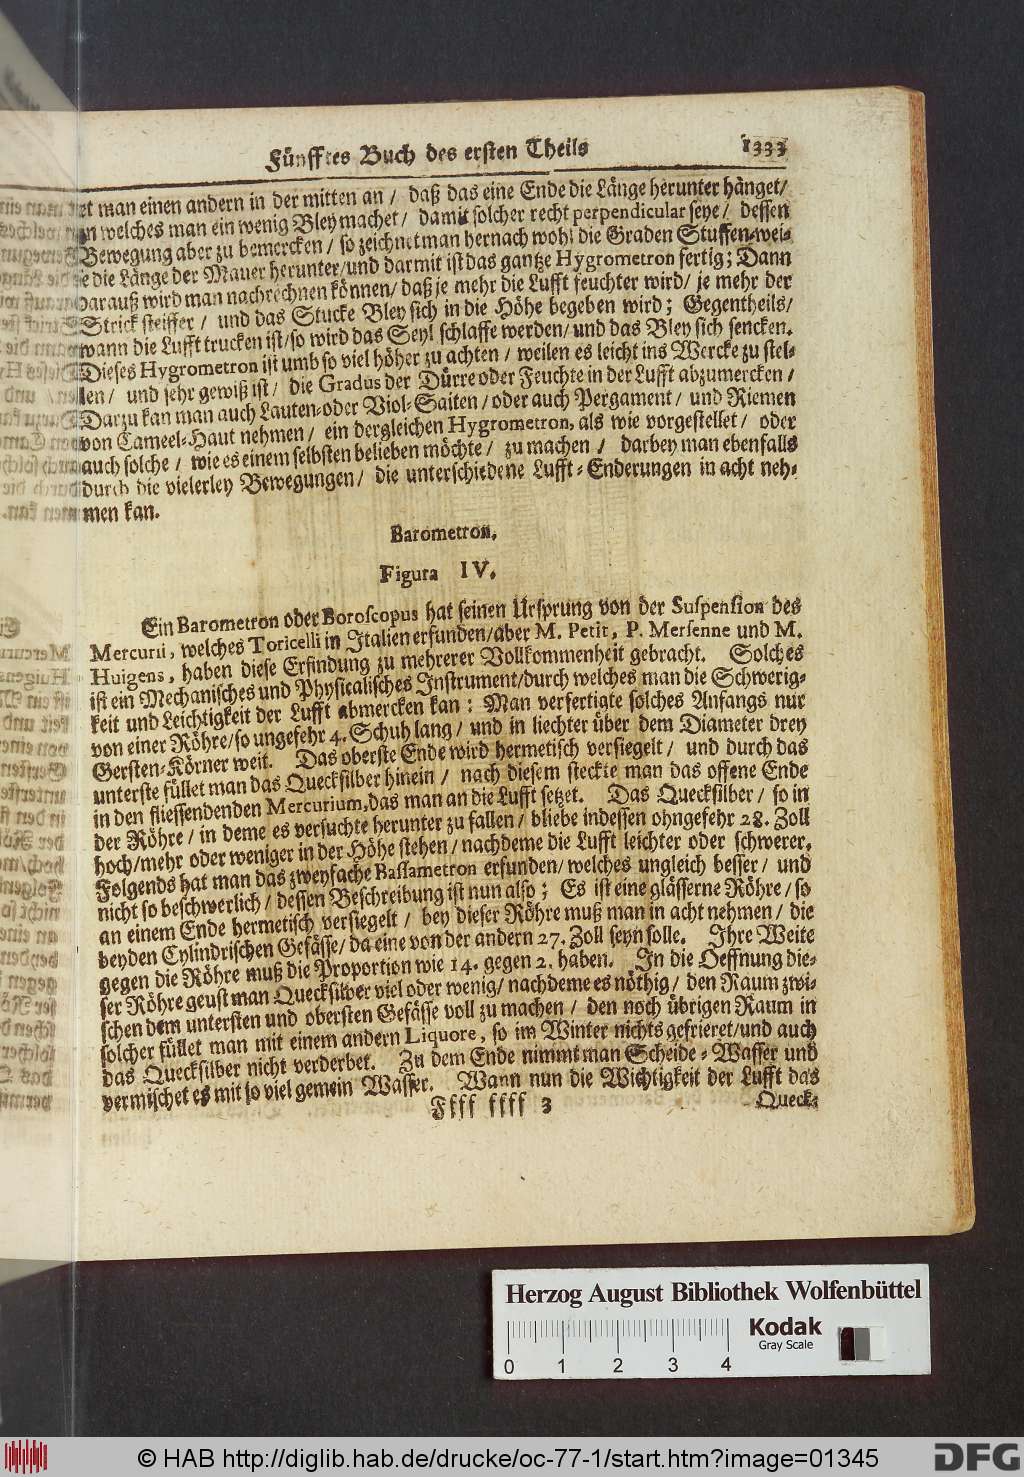 Fünfftes Buch des ersten Theils 1333
et man einen andern in der mitten an / daß das eine Ende die Länge herunter hänget/
an welches man ein wenig Bley machet / damit solcher recht perpendicular seye / dessen
Bewegung aber zu bemercken / so zeichnet man hernach wohl die Graden Stuffen-wei-
e die Länge der Mauer herunter/und darmit ist das gantze Hygrometron fertig; Dann
darauß wird man nachrechnen können/ daß je mehr die Lufft feuchter wird/ je mehr der
Strick steiffer / und das Stucke Bley sich in die Höhe begeben wird; Gegentheils/
wann die Lufft trucken ist/so wird das Seyl schlaffe werden/und das Bley sich sencken.
Dieses Hygrometron ist umb so viel höher zu achten / weilen es leicht ins Wercke zu stel-
len / und sehr gewiß ist / die Gradus der Dürre oder Feuchte in der Lufft abzumercken /
Darzu kan man auch Lauten-oder Viol-Saiten / oder auch Pergament / und Riemen
von Cameel-Haut nehmen / ein dergleichen Hygrometron, als wie vorgestellet / oder
auch solche / wie es einem selbsten belieben möchte / zu machen / darbey man ebenfalls
durch die vielerley Bewegungen / die unterschiedene Lufft-Enderungen in acht neh-
men kan.
Barometron.
Figura IV.
Ein Barometron oder Boroscopus hat seinen Ursprung von der Suspension des
Mercurii, welches Toricelli in Italien erfunden/aber M. Petit, P. Mersenne und M.
Huigens, haben diese Erfindung zu mehrerer Vollkommenheit gebracht. Solches
ist ein Mechanisches und Physicalisches Instrument/durch welches man die Schwerig-
keit und Leichtigkeit der Lufft abmercken kan: Man verfertigte solches Anfangs nur
von einer Röhre/so ungefehr 4. Schuh lang / und in liechter über dem Diameter drey
Gersten-Körner weit. Das oberste Ende wird hermetisch versiegelt / und durch das
unterste füllet man das Quecksilber hinein / nach diesem steckte man das offene Ende
in den fliessendenden Mercurium, das man an die Lufft setzet. Das Quecksilber / so in
der Röhre / in deme es versuchte herunter zu fallen / bliebe indessen ohngefehr 28. Zoll
hoch/mehr oder weniger in der Höhe stehen / nachdeme die Lufft leichter oder schwerer,
Folgends hat man das zweyfache Bassametron erfunden/welches ungleich besser / und
nicht so beschwerlich / dessen Beschreibung ist nun also; Es ist eine glässerne Röhre / so
an einem Ende hermetisch versiegelt / bey dieser Röhre muß man in acht nehmen / die
beyden Cylindrischen Gefässe/ da eine von der andern 27. Zoll seyn solle. Ihre Weite
gegen die Röhre muß die Proportion wie 14. gegen 2. haben. In die Oeffnung die-
ser Röhre geust man Quecksilber viel oder wenig/ nachdeme es nöthig / den Raum zwi-
schen dem untersten und obersten Gefässe voll zu machen / den noch übrigen Raum in
solcher füllet man mit einem andern Liquore, so im Winter nichts gefrieret/und auch
das Quecksilber nicht verderbet. Zu dem Ende nimmt man Scheide-Wasser und
vermischet es mit so viel gemein Wasser. Wann nun die Wichtigkeit der Lufft das
Ffff ffff 3 Queck-
Herzog August Bibliothek Wolfenbüttel
Kodak
Gray Scale
0 1 2 3 4
© HAB http://diglib.hab.de/drucke/oc-77-1/start.htm?image=01345
DFG